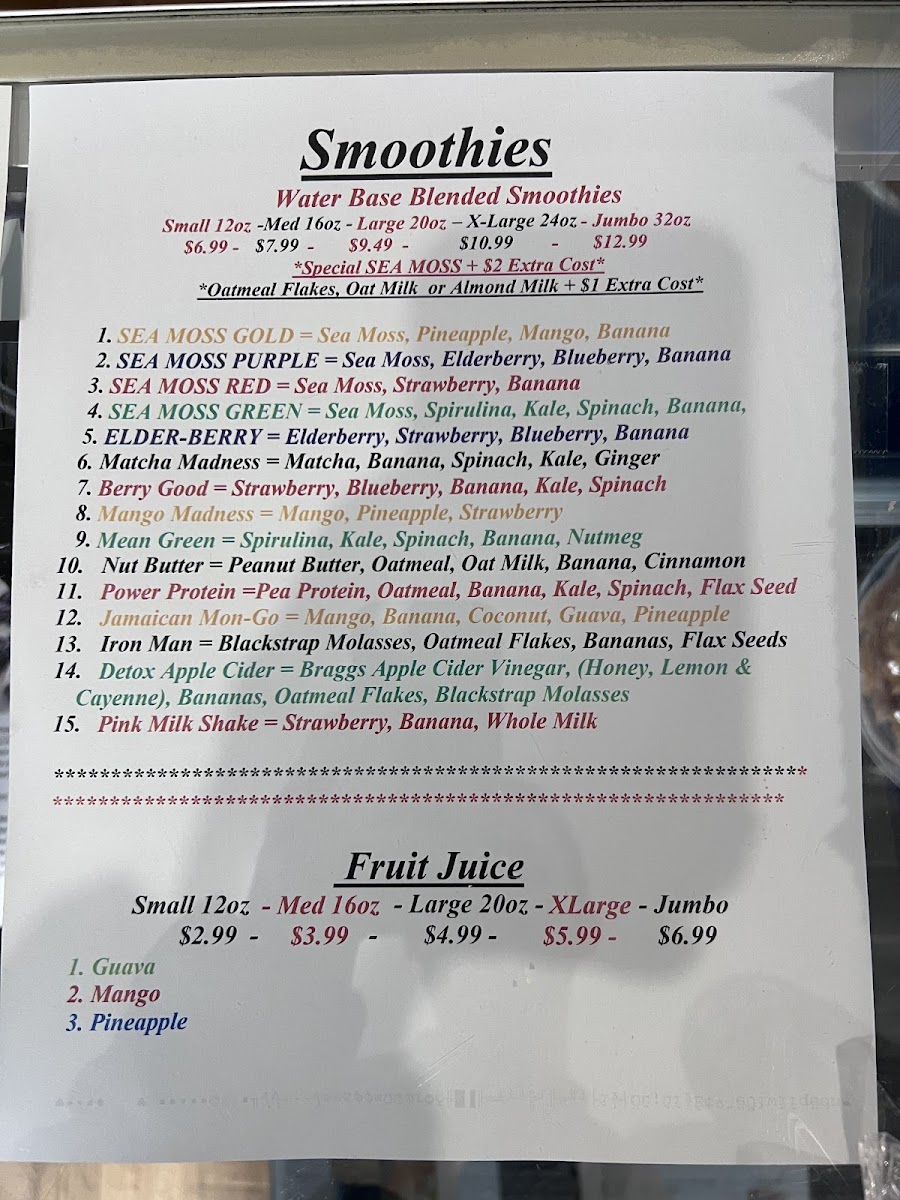 Smoothies
Water Base Blended Smoothies
Small 12oz -Med 16oz - Large 20oz – X-Large 24oz - Jumbo 32oz
$6.99 - $7.99 - $9.49 - $10.99 - $12.99
*Special SEA MOSS + $2 Extra Cost*
*Oatmeal Flakes, Oat Milk or Almond Milk + $1 Extra Cost*
1. SEA MOSS GOLD = Sea Moss, Pineapple, Mango, Banana
2. SEA MOSS PURPLE = Sea Moss, Elderberry, Blueberry, Banana
3. SEA MOSS RED = Sea Moss, Strawberry, Banana
4. SEA MOSS GREEN = Sea Moss, Spirulina, Kale, Spinach, Banana,
5. ELDER-BERRY = Elderberry, Strawberry, Blueberry, Banana
6. Matcha Madness = Matcha, Banana, Spinach, Kale, Ginger
7. Berry Good = Strawberry, Blueberry, Banana, Kale, Spinach
8. Mango Madness = Mango, Pineapple, Strawberry
9. Mean Green = Spirulina, Kale, Spinach, Banana, Nutmeg
10. Nut Butter = Peanut Butter, Oatmeal, Oat Milk, Banana, Cinnamon
11. Power Protein =Pea Protein, Oatmeal, Banana, Kale, Spinach, Flax Seed
12. Jamaican Mon-Go = Mango, Banana, Coconut, Guava, Pineapple
13. Iron Man = Blackstrap Molasses, Oatmeal Flakes, Bananas, Flax Seeds
14. Detox Apple Cider = Braggs Apple Cider Vinegar, (Honey, Lemon &
Cayenne), Bananas, Oatmeal Flakes, Blackstrap Molasses
15. Pink Milk Shake = Strawberry, Banana, Whole Milk
******************************************************************
****************************************************************
Fruit Juice
Small 12oz - Med 16oz - Large 20oz - XLarge - Jumbo
$2.99 - $3.99 - $4.99 - $5.99 - $6.99
1. Guava
2. Mango
3. Pineapple